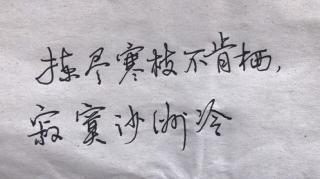 拣尽寒枝不肯栖,
寂寞沙洲冷